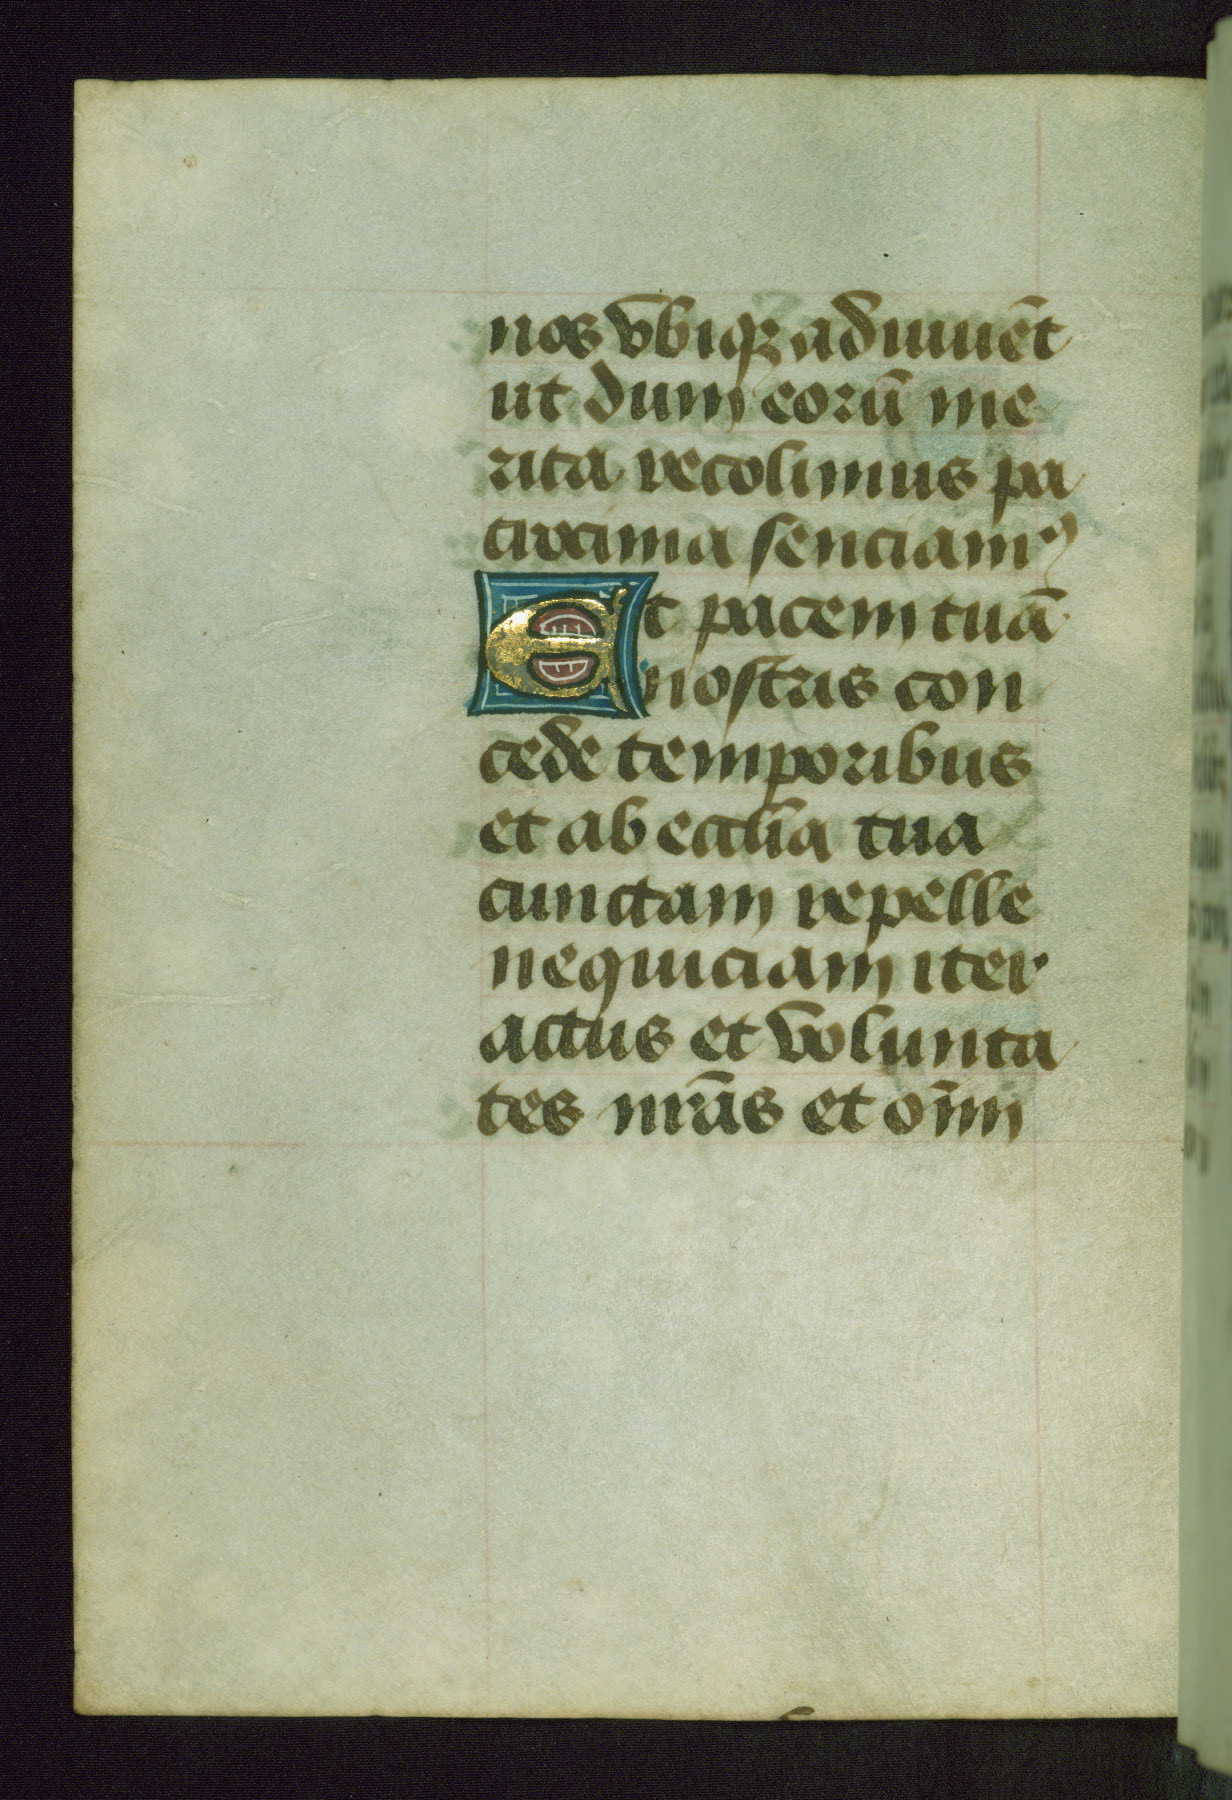 nos vbiqꝫ adiuuēt
ut dum eorū me
rita recolimus pa
trocinia senciamꝰ
Et pacem tuā
nostris con
cede temporibus
et ab ecclīa tua
cunctam repelle
nequiciam iter
actus et volunta
tes nrās et om̄i